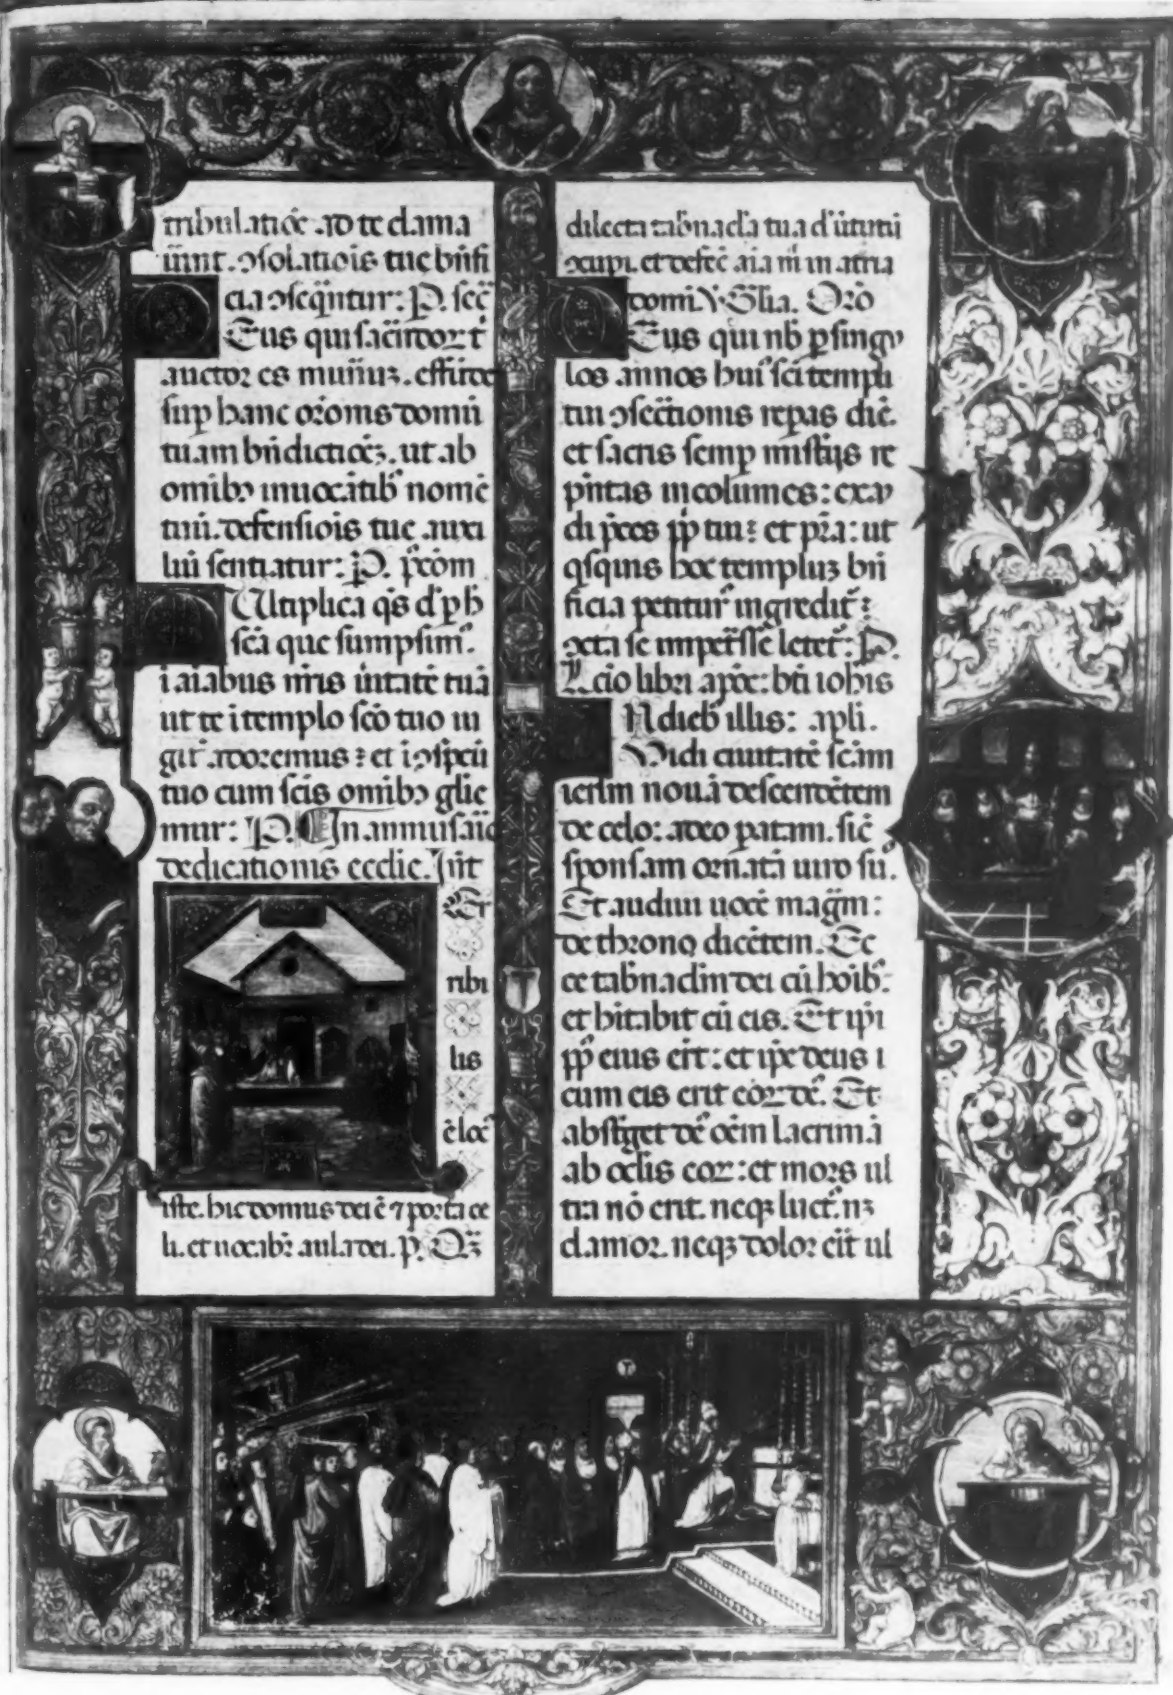 tribulatiōe. ad te clama
uerint. ɔsolatiōis tue bn̄fi
cia ɔseq̄ntur: P. sec̄
Eus qui sac̄ndoꝝ t'
auctor es munūꝫ. effunde
sup hanc or̄onis domū
tuam bn̄dictiōeꝫ. ut ab
omibꝫ inuocātibꝰ nomē
tuū. defensiōis tue auxi
liū sentiatur: P. p̄cōm
Ultiplica q̄s dn̄e p
sc̄a que sumpsimꝰ.
i aīabus nr̄is ūitatē tuā
ut te i templo sc̄o tuo iu
git̄ adoremus: et i ɔspectū
tuo cum sc̄is omibꝫ glīe
mur: P. In anniu̇saīo
dedicationis ecclīe. Int̄
Er
ribi
lis
ē loc̄
iste. hic domus dei ē ⁊ porta ce
li. et uocabr̄ aula dei. p̄. Qꝫ
dilecta tab̄nacla tua dn̄ū
ɔcupi. et defec̄ aīa m̄ in atria
domī. V. Glīa. Or̄o
Eus qui nb̄ p singu
los annos huiꝰ sc̄i templi
tui ɔsec̄tionis reparas diē.
et sacris semp mist̄iis re
p̄ntas incolumes: exau
di p̄ces pp̄ tui: et pr̄a: ut
q̄squis hoc templuꝫ bn̄
ficia petiturꝰ ingredit̄:
ɔcta se impet̄sse letet̄: P.
Lc̄io libri apoc̄: bt̄i iohīs
N diebꝰ illis: apl̄i.
Vidi ciuitatē sc̄am
ierl̄m nouā descendētem
de celo: a deo patam. sic̄
sponsam ornatā uiro suo.
Et audiui uocē mag̅m:
de throno dicētem. Ec
ce tab̄naclm̄ dei cū hoībꝰ:
et hītabit cū eis. Et ipī
pp̄ eius er̄t: et ip̄e deus i
cum eis erit eoꝝ deꝰ. Et
abst̄get deꝰ oēm lacrimā
ab oclis eoꝝ: et mors ul
tra nō erit. neqꝫ luctꝰ. nꝫ
clamor. neqꝫ dolor eīt ul